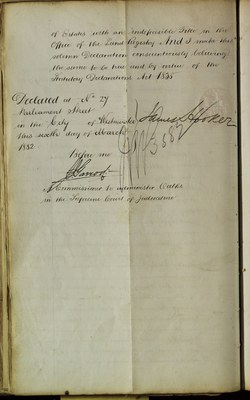 of Estates with an indefeasible Title in the
Office of the Land Registry And I make this
solemn Declaration conscientiously believing
the same to be true and by virtue of the
Statutory Declarations Act 1835
Declared at No 27
Parliament Street
in the City of Westminster James S Hooker
this sixth day of March
1882
Before me
A Commissioner to administer Oaths
in the Supreme Court of Judicature